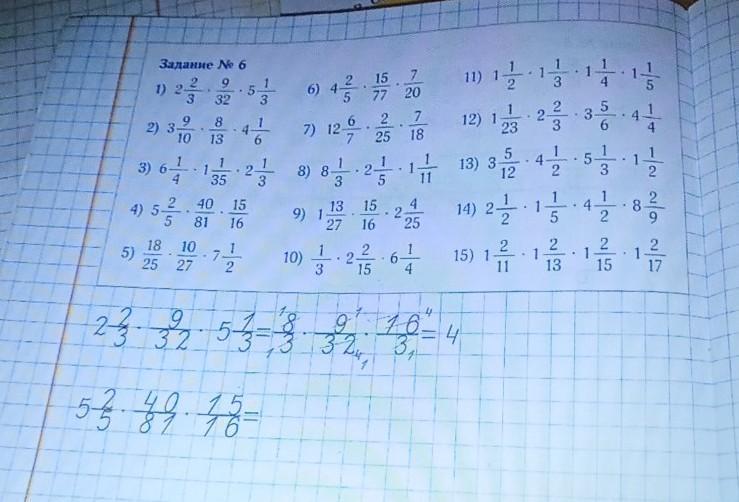 Задание № 6
1) 2 2/3 · 9/32 · 5 1/3
2) 3 9/10 · 8/13 · 4 1/6
3) 6 1/4 · 1 1/35 · 2 1/3
4) 5 2/5 · 40/81 · 15/16
5) 18/25 · 10/27 · 7 1/2
6) 4 2/5 · 15/77 · 7/20
7) 12 6/7 · 2/25 · 7/18
8) 8 1/3 · 2 1/5 · 1 1/11
9) 1 13/27 · 15/16 · 2 4/25
10) 1/3 · 2 2/15 · 6 1/4
11) 1 1/2 · 1 1/3 · 1 1/4 · 1 1/5
12) 1 1/23 · 2 2/3 · 3 5/6 · 4 1/4
13) 3 5/12 · 4 1/2 · 5 1/3 · 1 1/2
14) 2 1/2 · 1 1/5 · 4 1/2 · 8 2/9
15) 1 2/11 · 1 2/13 · 1 2/15 · 1 2/17
2 2/3 · 9/32 · 5 1/3 = 8/3 · 9/32 · 16/3 = 4
5 2/5 · 40/81 · 15/16 =